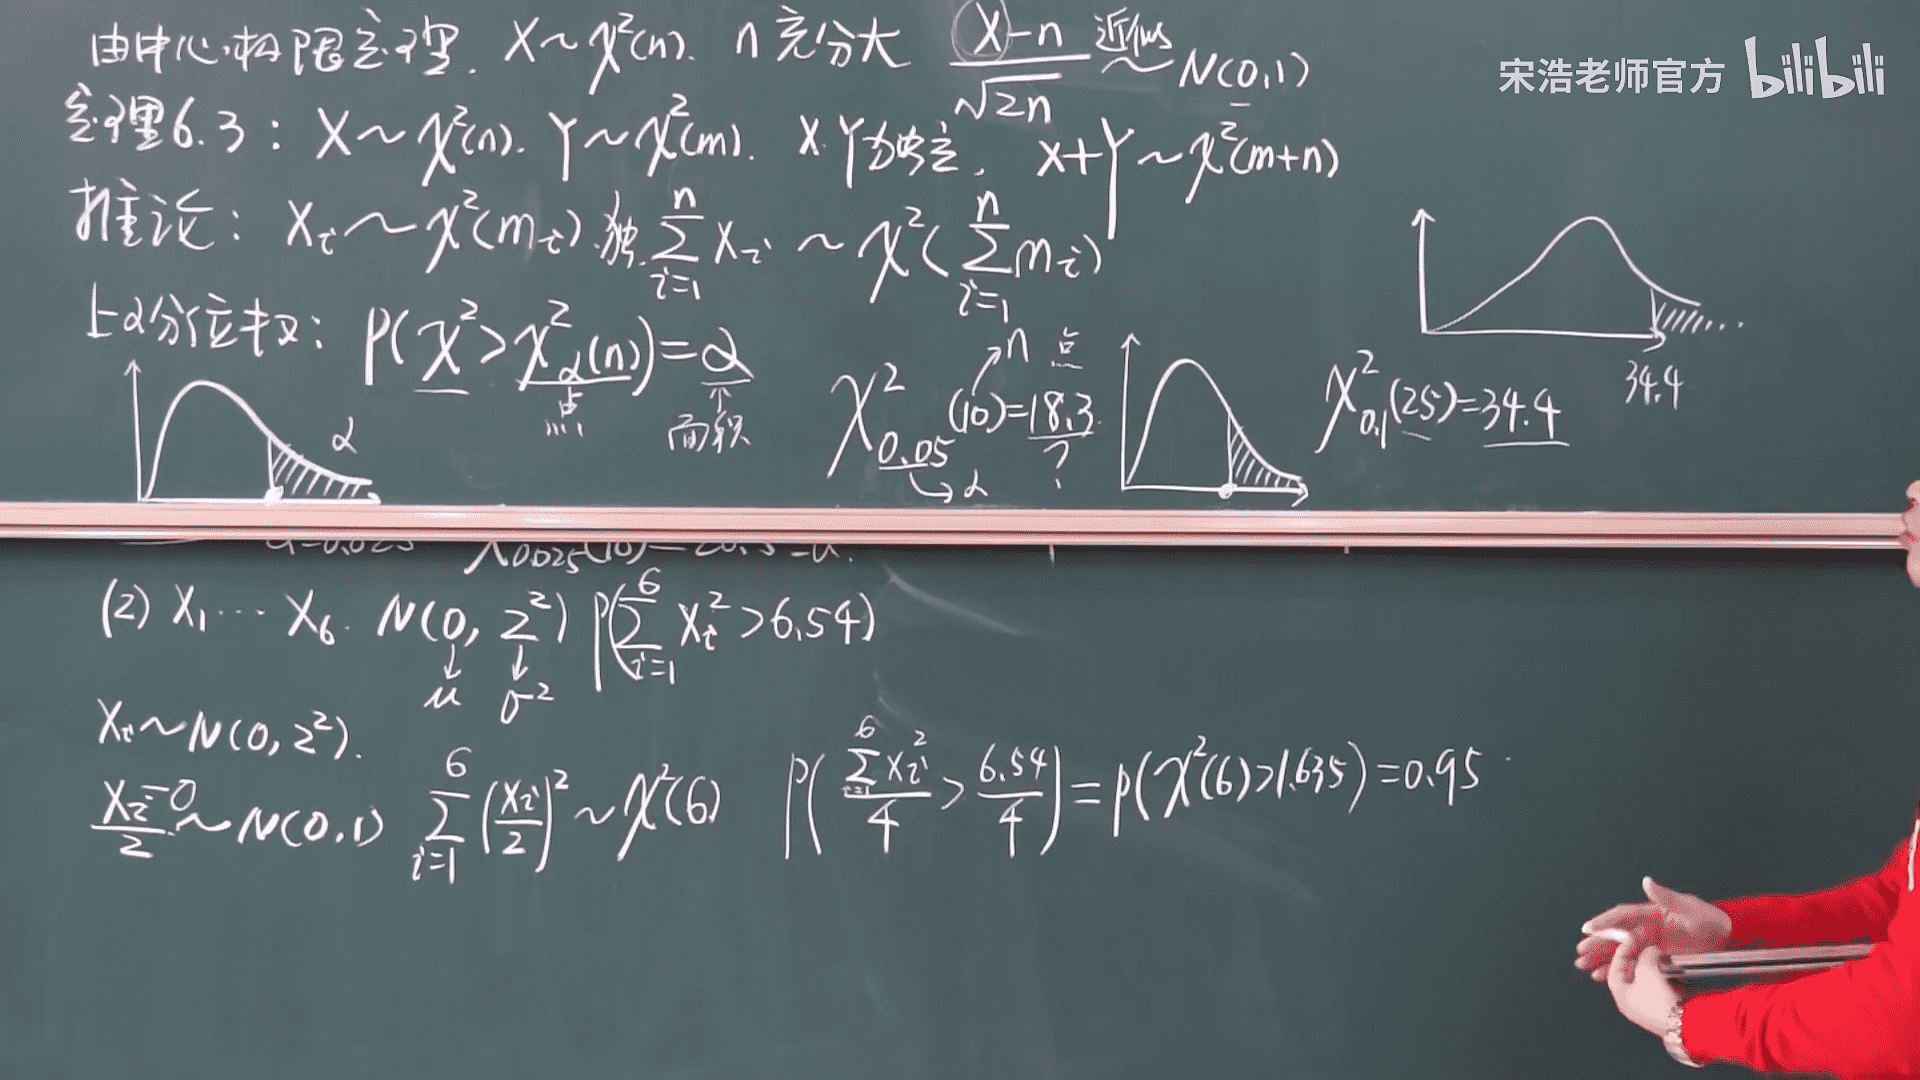 由中心极限定理. X~χ²(n). n充分大 (X-n)/√2n 近似~ N(0,1)
宋浩老师官方 bilibili
定理6.3: X~χ²(n). Y~χ²(m). X.Y独立. X+Y~χ²(m+n)
推论: Xi~χ²(mi).独. Σ_{i=1}^{n} Xi ~ χ²(Σ_{i=1}^{n} mi)
上α分位数: P(χ²>χ²_α(n))=α
点
面积
α
χ²_{0.05}(10)=18.3
n 点
?
α
χ²_{0.1}(25)=34.4
34.4
χ²_{0.025}(10)=20.5=a.
(2) X₁…X₆. N(0, 2²) P(Σ_{i=1}^{6} Xi²>6.54)
μ σ²
Xi~N(0,2²).
(Xi-0)/2 ~N(0,1) Σ_{i=1}^{6} (Xi/2)² ~χ²(6) P(Σ_{i=1}^{6} Xi²/4 > 6.54/4)=P(χ²(6)>1.635)=0.95